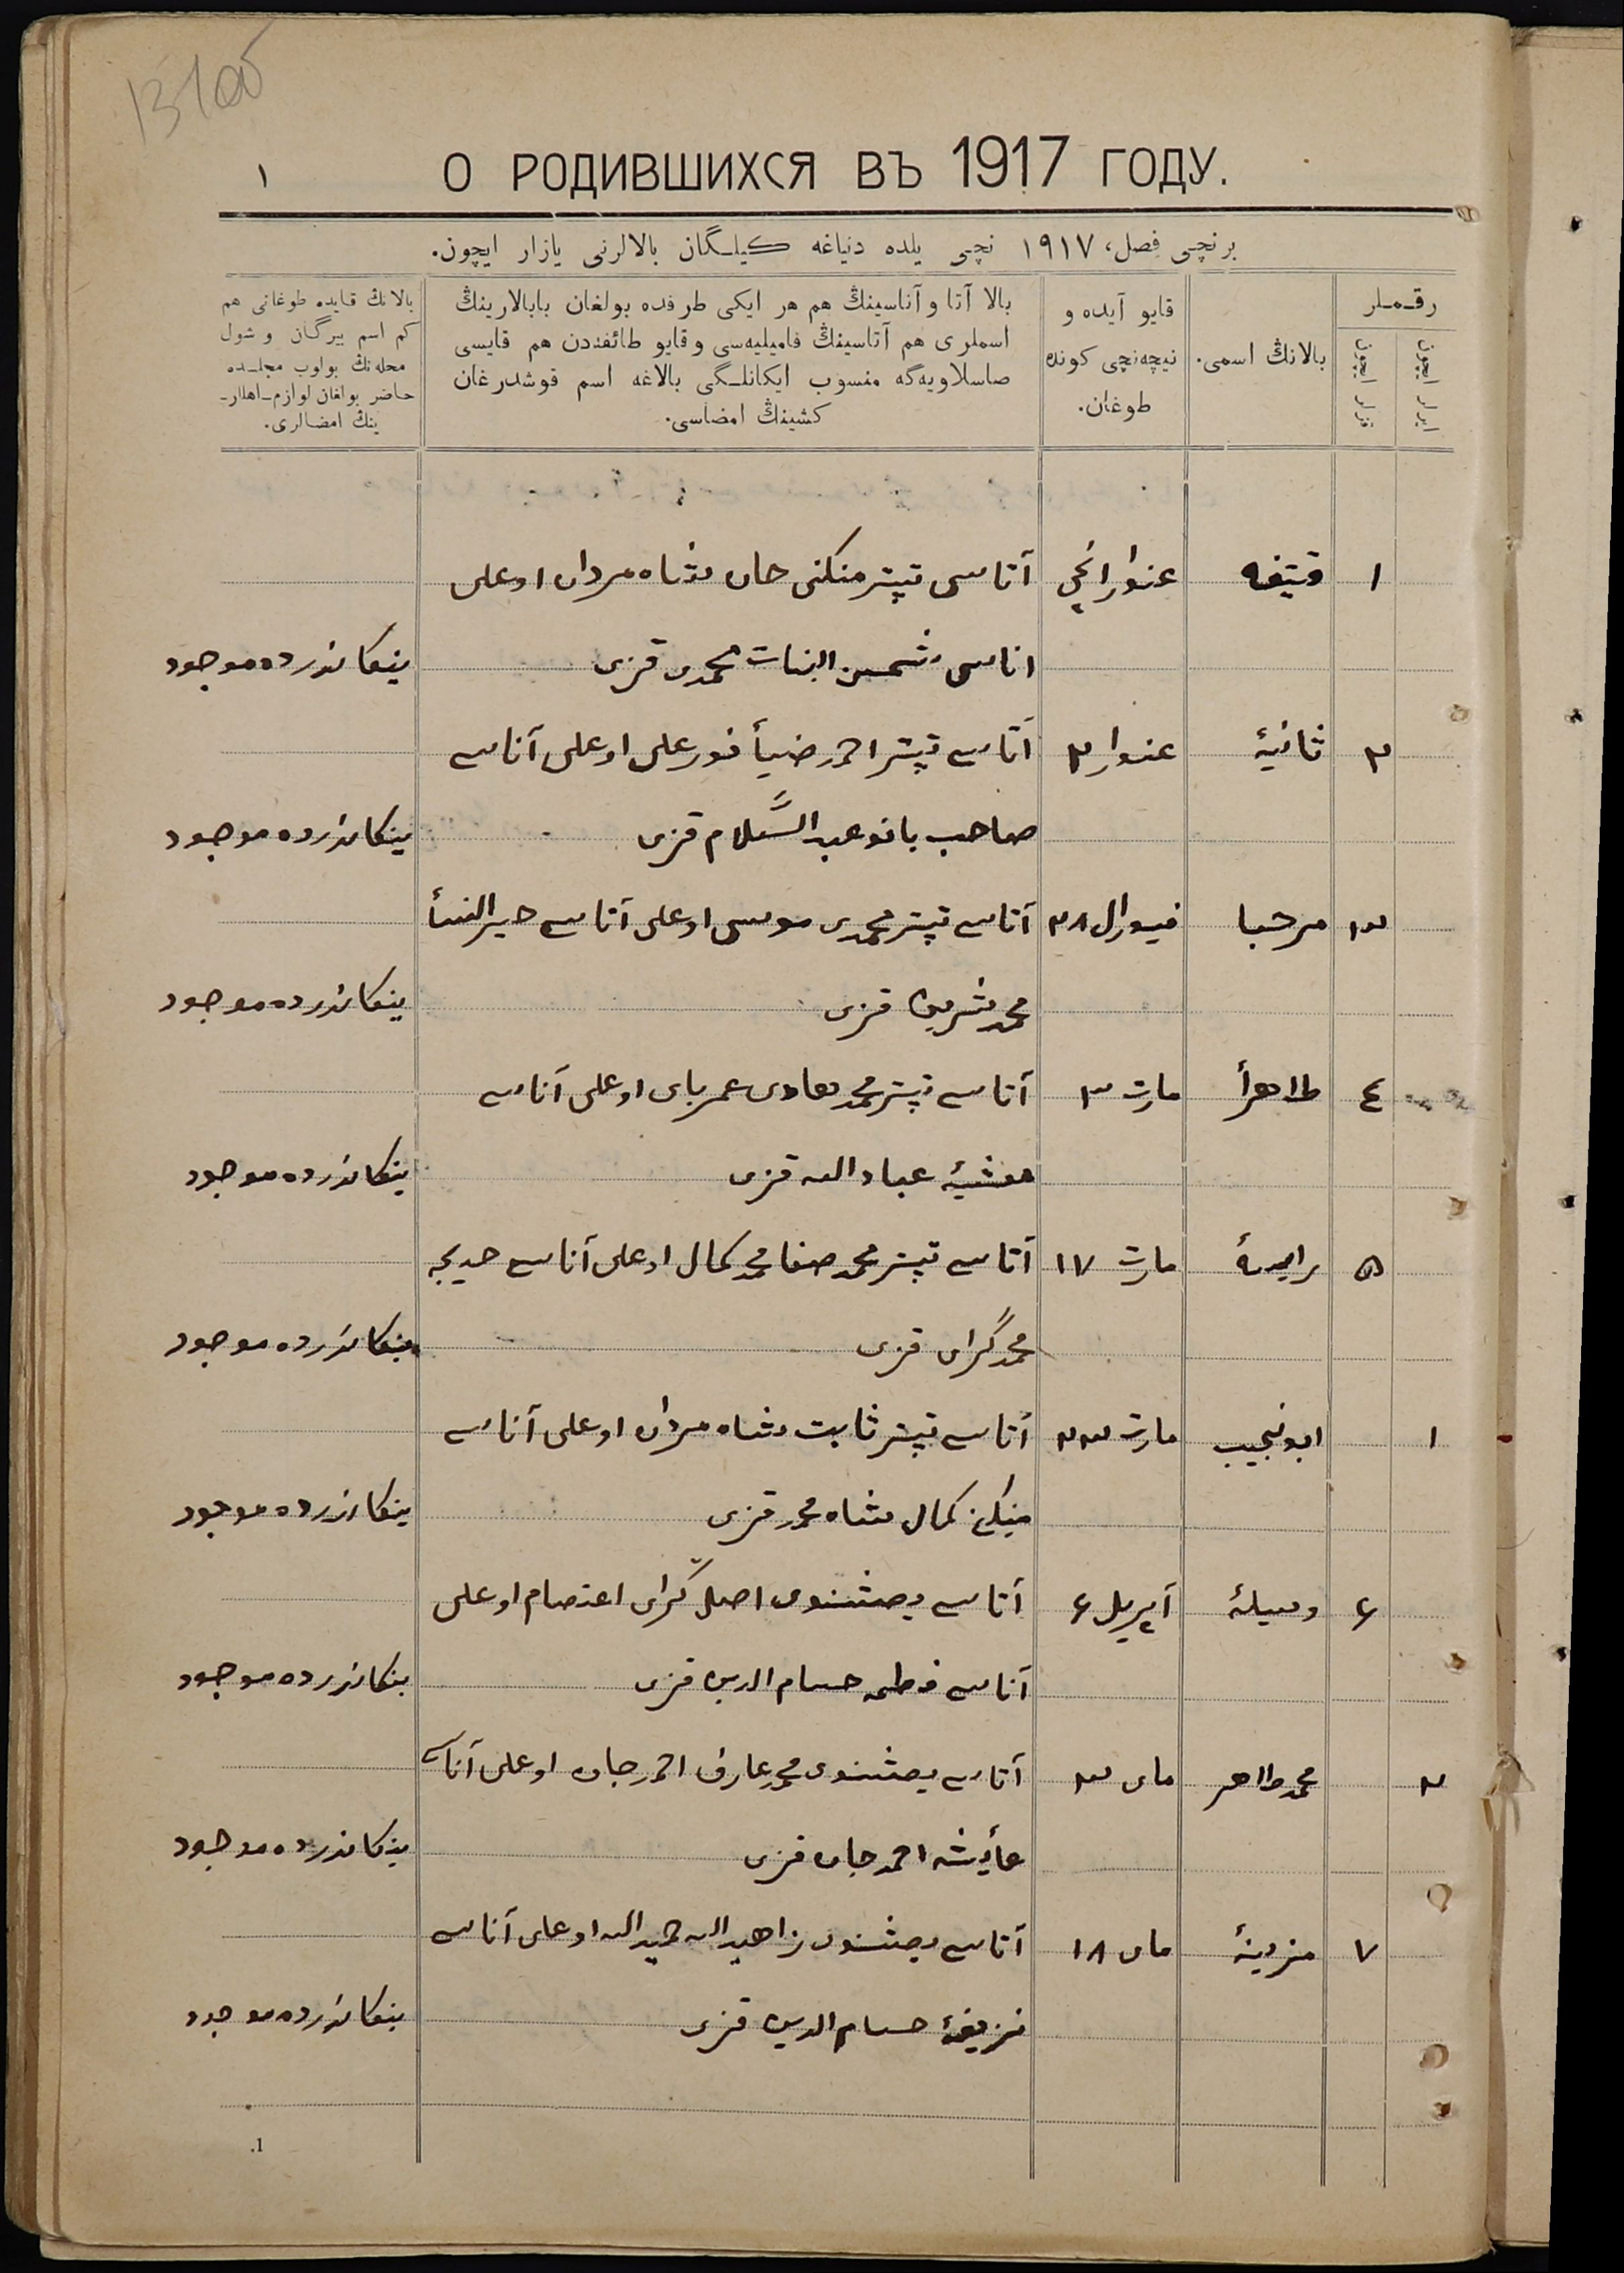 13100
О РОДИВШИХСЯ ВЪ 1917 ГОДУ.
١
برنچی فصل، ١٩١٧ نچی يلده دنياغه كيلـگان بالالرنی يازار ايچون.
رقـمـلر
ايرلر ايچون
قزلر ايچون
بالانڭ اسمی.
قايو آيده و
نيچه‌نچی كونده
طوغان.
بالا آتا و آناسينڭ هم هر ايكی طرفده بولغان بابالارينڭ
اسملری هم آتاسينڭ فاميليه‌سی و قايو طائفه‌دن هم قايسی
صاسلاويه‌گه منسوب ايكانلـگی بالاغه اسم قوشدرغان
كشينڭ امضاسی.
بالانڭ قايده طوغانی هم
كم اسم بيرگان و شول
محله‌نڭ بولوب مجلـده
حاضر بولغان لوازم‌ـاهلارـ
ينڭ امضالری.
١ عنوار ١نچی آتاسی تيپتر منكنی جان شاه مردان اوغلی
اناسی شمس البنات محمدی قزی ينكاندرده موجود
٢ ثانيۀ عنوار ٢ آتاسی تيپتر احمد ضيأ نورعلی اوغلی آناسی
صاحب بانو عبد السَّلام قزی ينكاندرده موجود
٣ مرحبا فيورال ٢٨ آتاسی تيپتر محمدی موسی اوغلی آناسی خير النسأ
محمد شريف قزی ينكاندرده موجود
٤ طاهرأ مارت ٣ آتاسی تيپتر محمد هادی عمربای اوغلی آناسی
عباد الله قزی ينكاندرده موجود
٥ مارت ١٧ آتاسی تيپتر محمد صفا محمد كمال اوغلی آناسی خديجه
محمد گرای قزی ينكاندرده موجود
١ ابونجيب مارت ٢٣ آتاسی تيپتر ثابت شاه مردان اوغلی آناسی
كمال شاه محمد قزی ينكاندرده موجود
٦ وسيلۀ آپريل ٤ آتاسی اصل گرای اعتصام اوغلی
آناسی فاطمه حسام الدين قزی ينكاندرده موجود
٢ محمد طاهر مای ٣ آتاسی محمد عارف احمد جان اوغلی آناسی
عأيشه احمد جان قزی ينكاندرده موجود
٧ مزينۀ مای ١٨ آتاسی زاهيد الله حميد الله اوغلی آناسی
حسام الدين قزی ينكاندرده موجود
1.